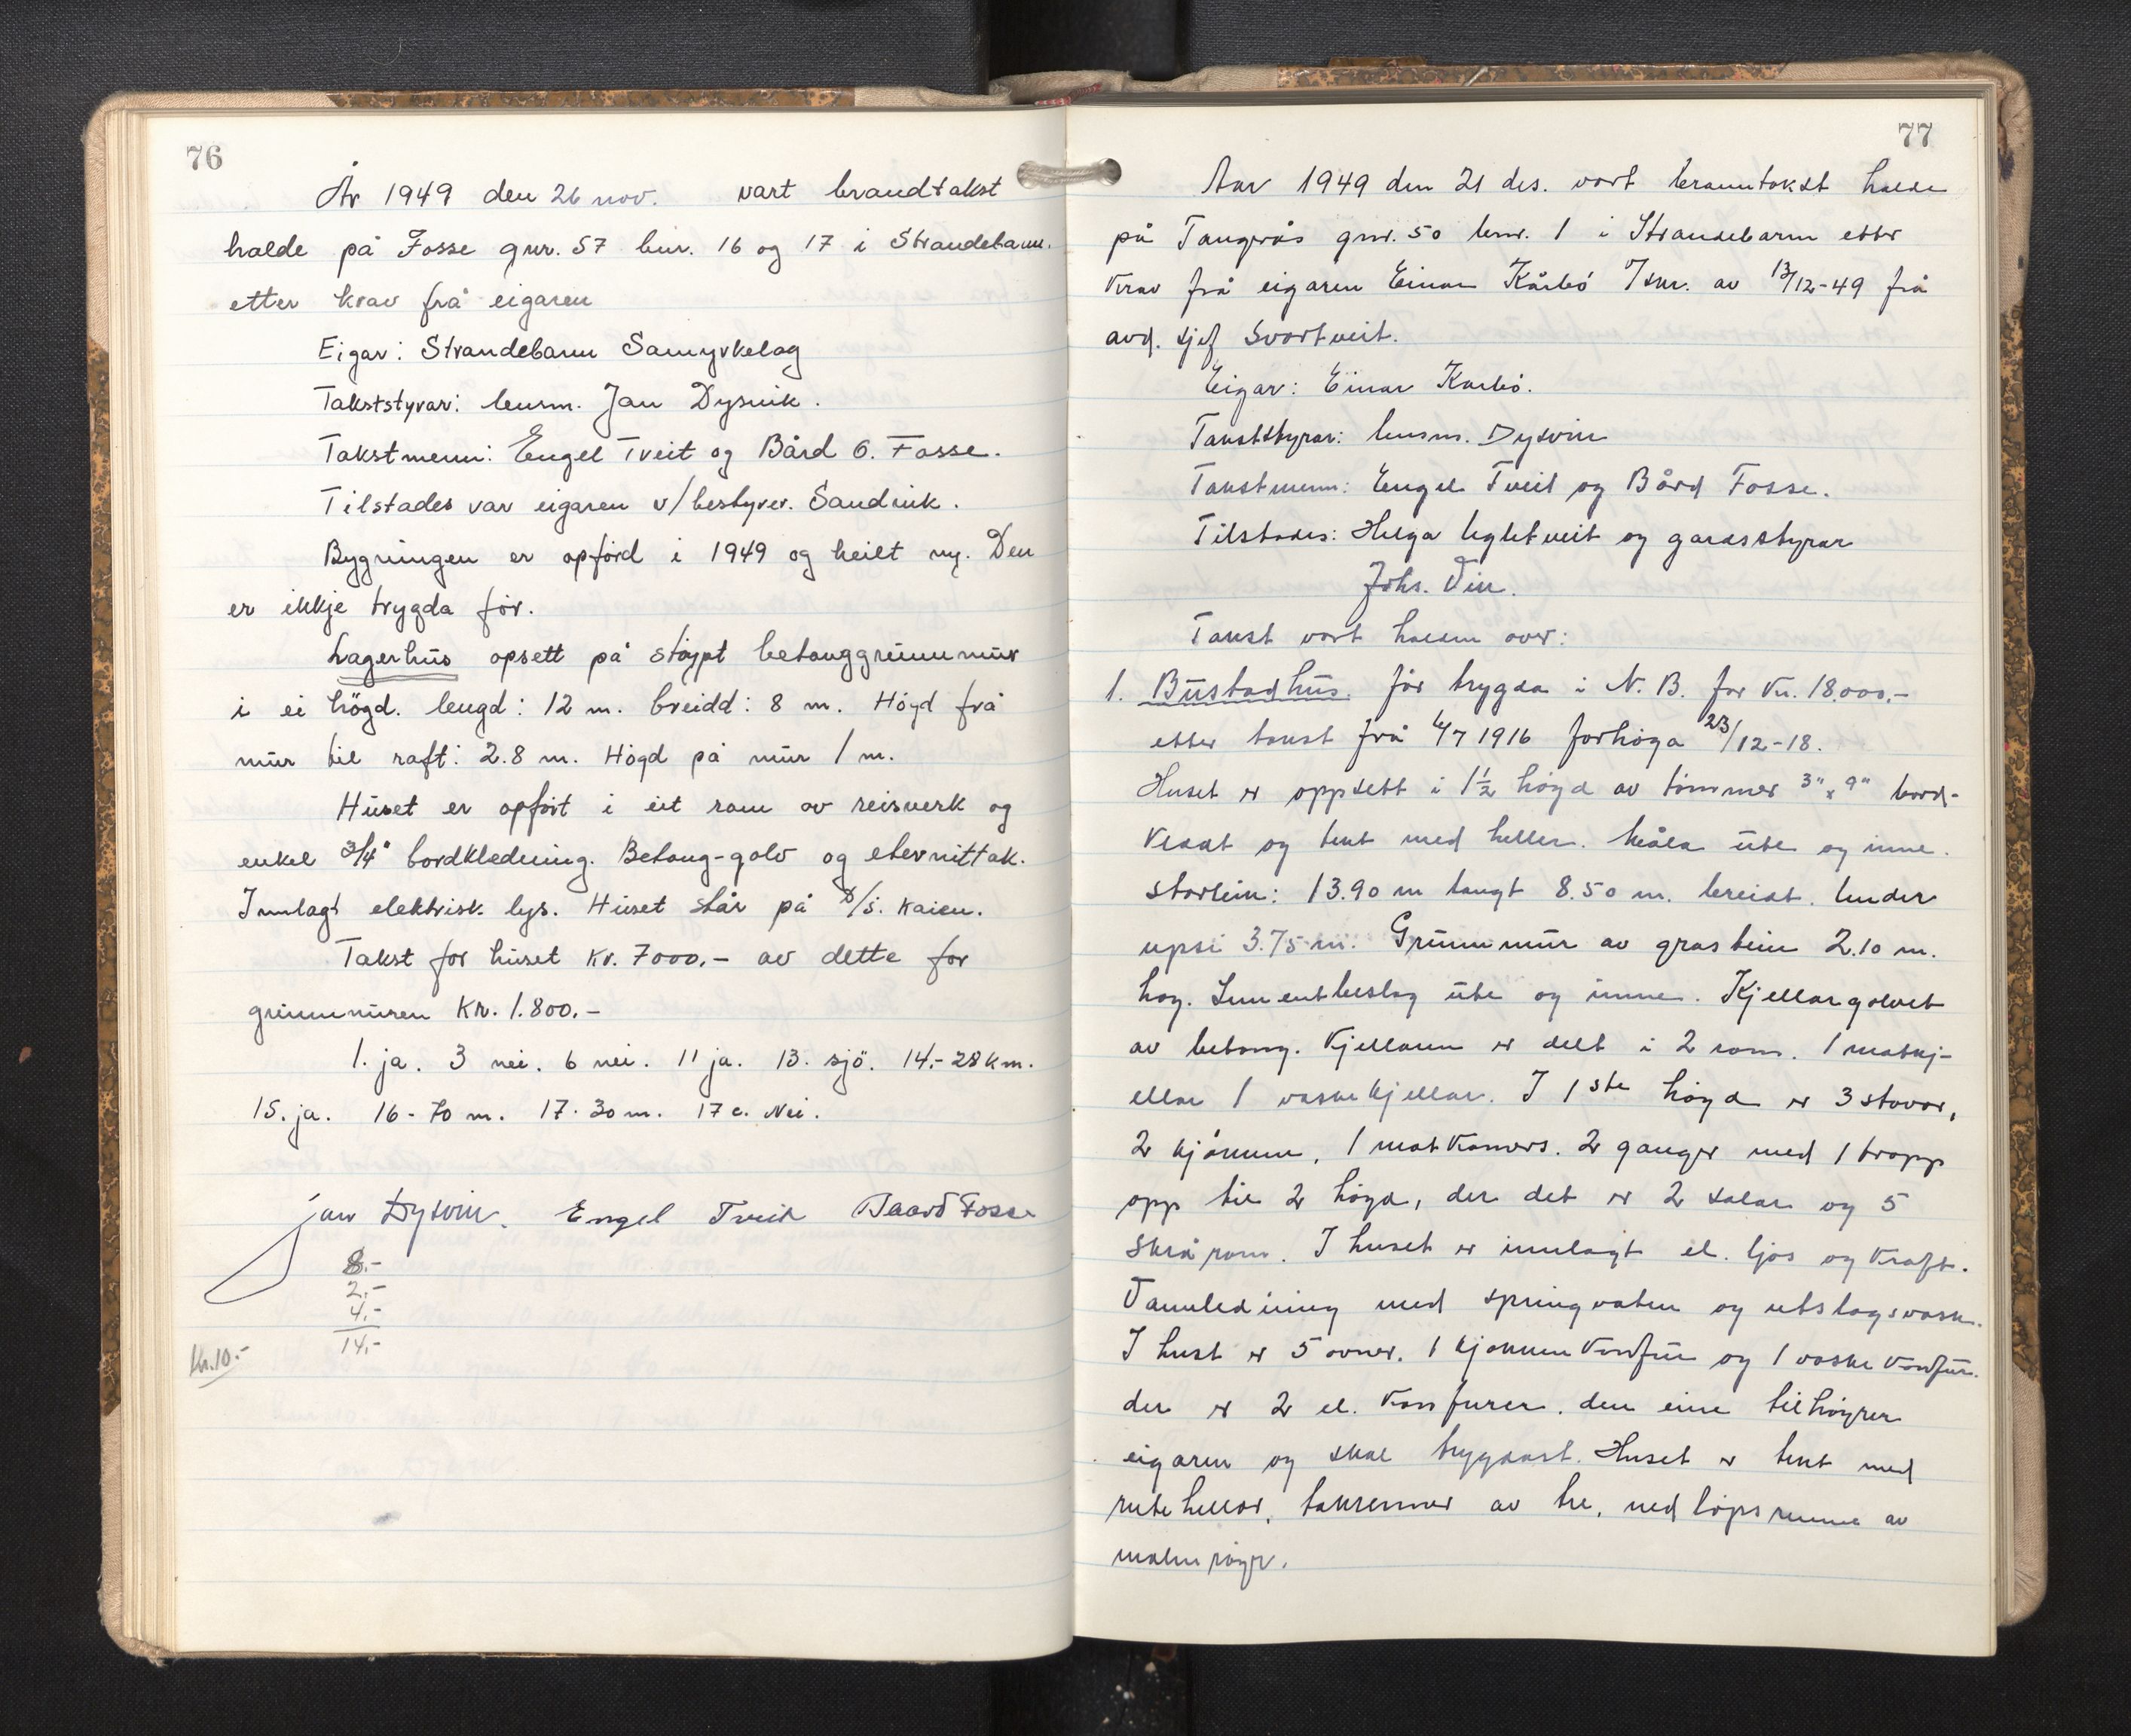 76
År 1949 den 26 nov. vart brandtakst
halde på Fosse gnr. 57 bnr. 16 og 17 i Strandebarm.
etter krav frå eigaren
Eigar: Strandebarm Samyrkelag
Takststyrar: lensm. Jan Dysvik.
Takstmenn: Engel Tveit og Bård O. Fosse.
Tilstades var eigaren v/bestyrer. Sandvik.
Bygningen er opförd i 1949 og heilt ny. Den
er ikkje trygda för.
Lagerhus opsett på støypt betonggrunnmur
i ei högd. lengd: 12 m. breidd: 8 m. Högd frå
mur til raft: 2.8 m. Högd på mur 1 m.
Huset er opfört i eit rom av reisverk og
enkel 3/4" bordkledning. Betong-golv og eternittak.
Innlagt elektrisk lys. Huset står på D/S. kaien.
Takst for huset kr. 7000.- av dette for
grunnmuren kr. 1.800.-
1. ja. 3 nei. 6 nei. 11 ja. 13. sjö. 14.- 28 km.
15. ja. 16 - 70 m. 17. 30 m. 17 c. Nei.
Jan Dysvik. Engel Tveit Baard Fosse
8.-
2.-
4.-
14.-
Kr. 10.-
77
Aar 1949 den 21 des. vart branntakst halde
på Tangerås gnr. 50 bnr. 1 i Strandebarm etter
krav frå eigaren Einar Kårbö i skr. av 13/12-49 frå
avd. sjef Svortveit.
Eigar: Einar Karbö.
Takststyrar: lensm. Dysvik
Takstmenn: Engel Tveit og Bård Fosse.
Tilstades: Helga Egletveit og gardsstyrar
Johs. Vik.
Takst vart halden over:
1. Bustadhus. för trygda i N. B. for kr. 18.000.-
etter takst frå 4/7 1916 forhöga 23/12-18.
Huset er oppsett i 1½ högd av tömmer 3" x 9" bord-
kledt og tekt med heller. Måla ute og inne.
Storleik: 13.90 m langt 8.50 m. breidt. Under
upsi 3.75 m. Grunnmur av gråstein 2.10 m.
hög. Sementbeslag ute og inne. Kjellargolvet
av betong. Kjellaren er delt i 2 rom. 1 matkj-
ellar 1 vaskekjellar. I 1ste högd er 3 stovor,
2 kjöken, 1 matkamers. 2 ganger med 1 tropp
opp til 2 högd, der det er 2 salar og 5
skrårom. I huset er innlagt el. ljos og kraft.
Vannledning med springvatn og utslagsvask.
I huset er 5 ovner. 1 kjökkenkomfur og 1 vaskekomfur.
der er 2 el. komfurer. den eine tilhöyrer
eigaren og skal trygdast. Huset er tekt med
rutehellor, takrenner av tre, nedlöpsrenne av
malmröyr.